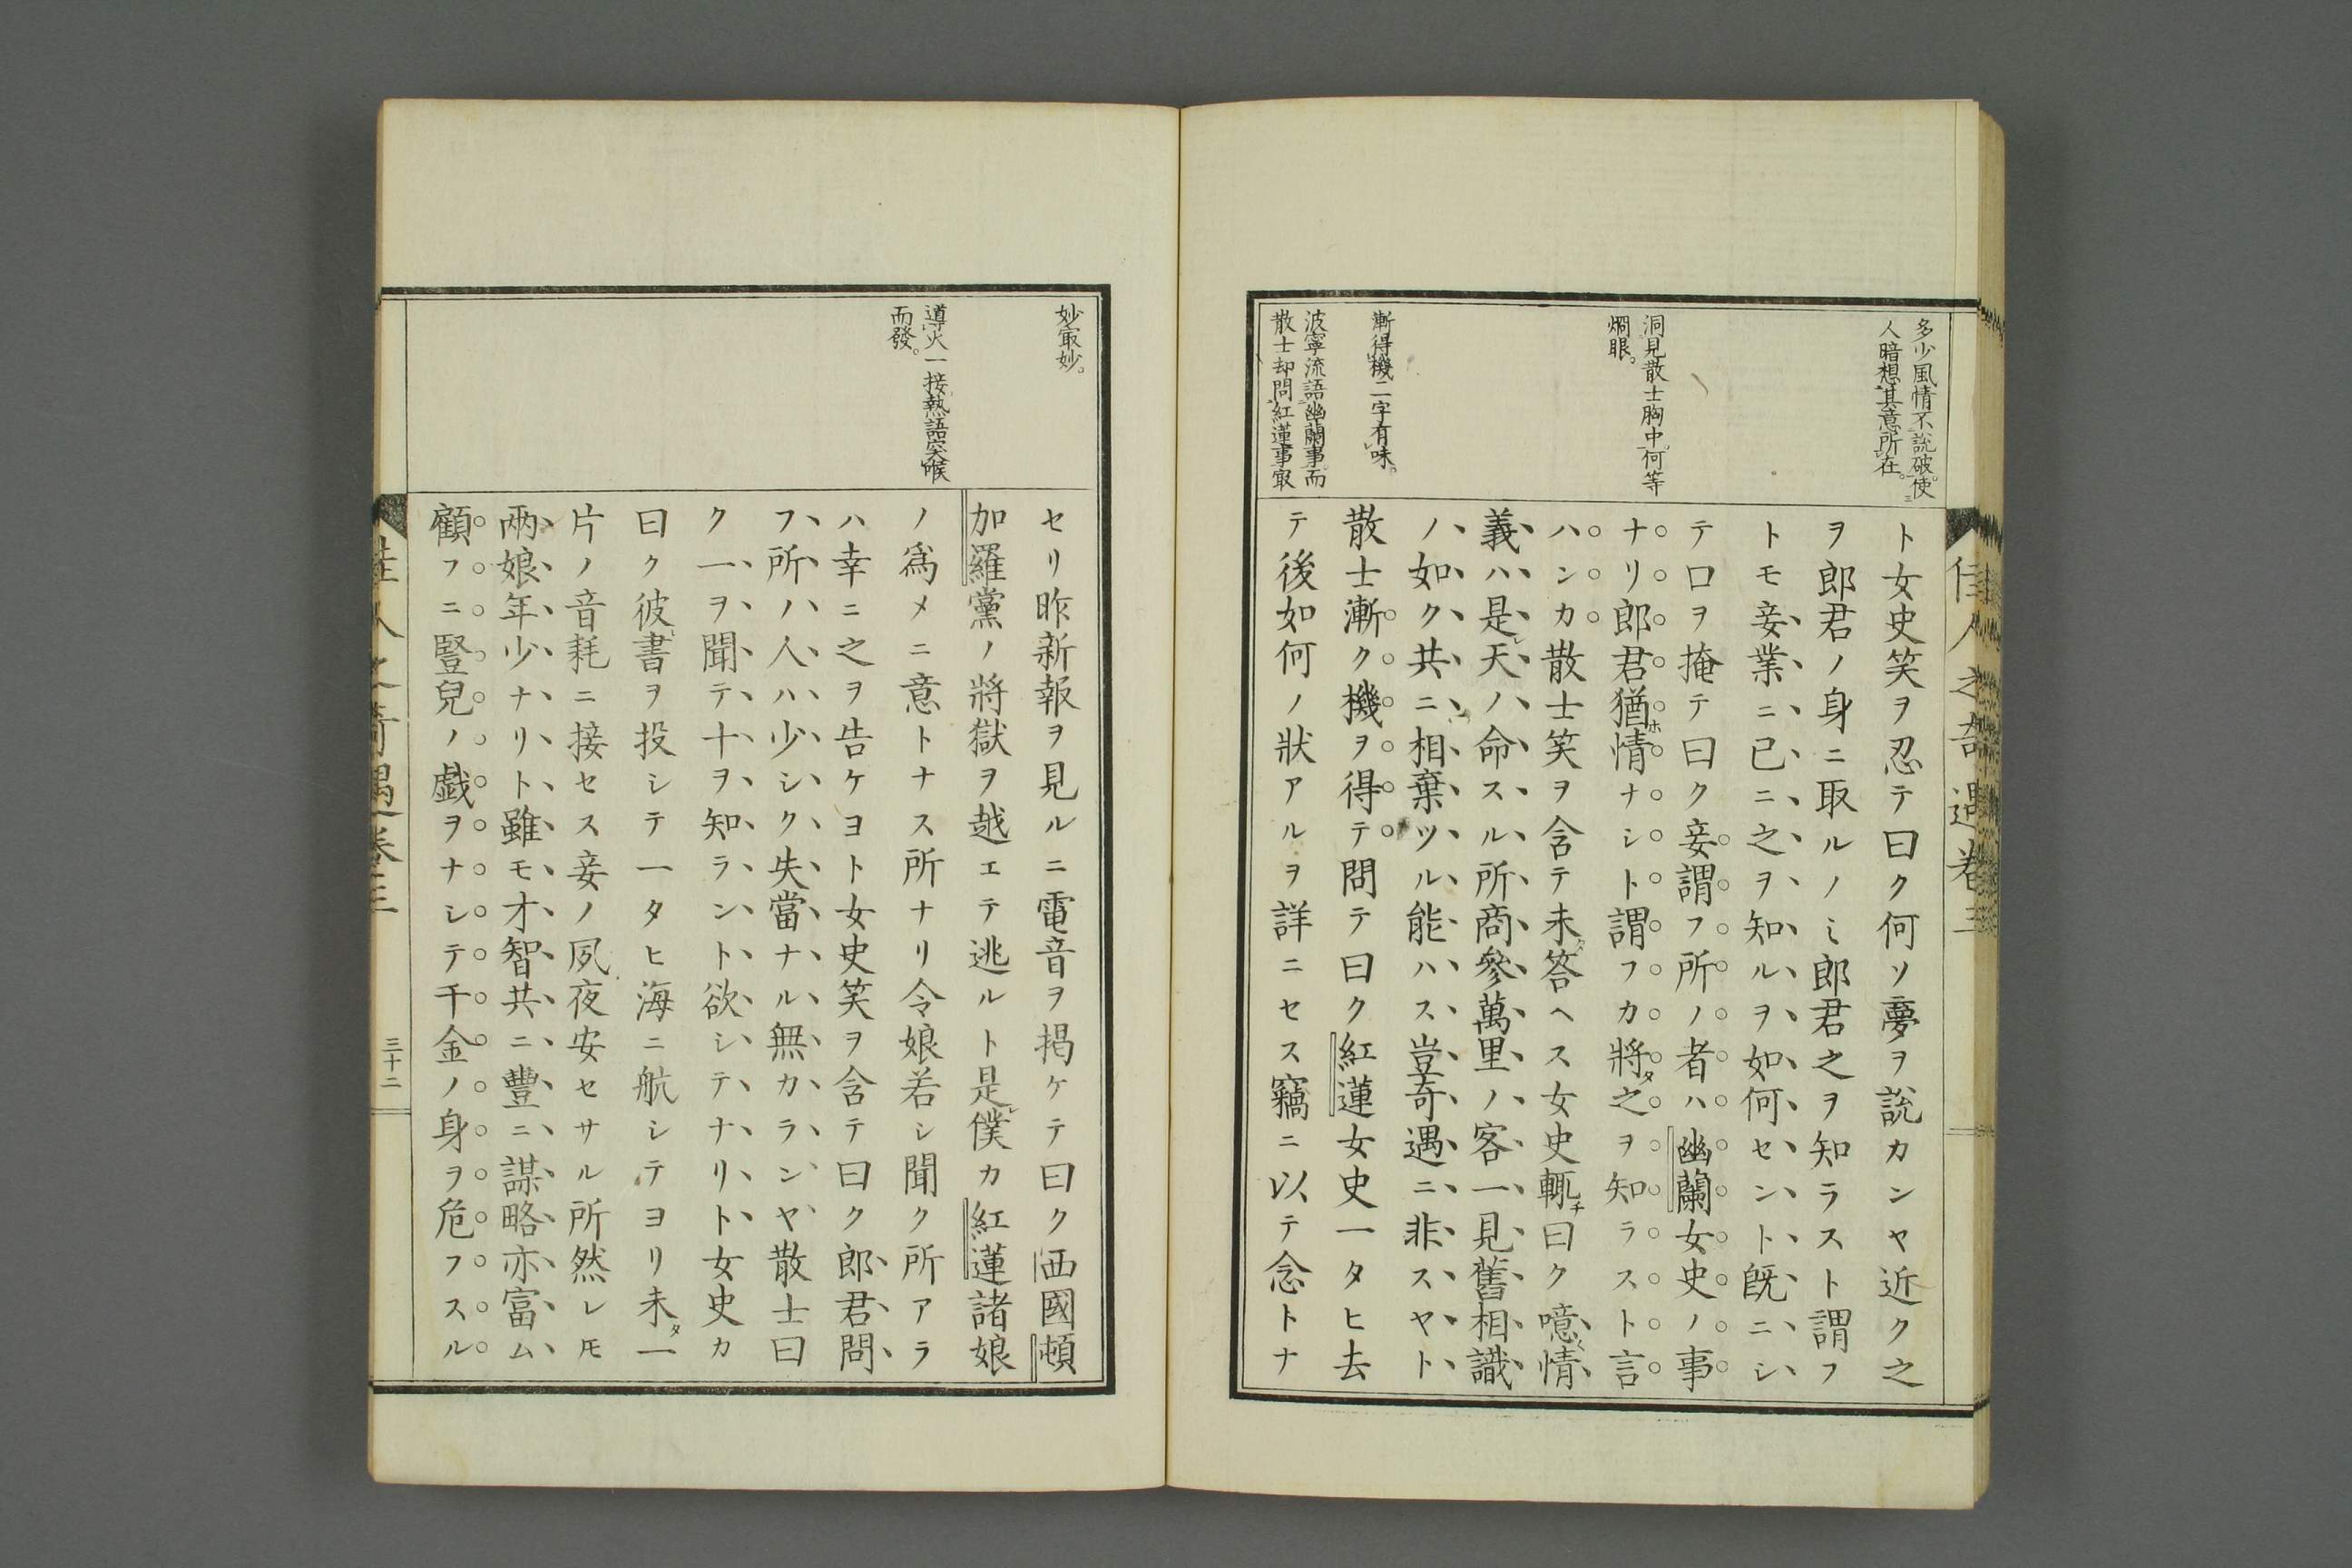 佳人之奇遇卷三
多少風情不說破使
人暗想其意所在。
洞見散士胸中何等
烱眼。
漸得機二字有味。
波寧流語幽蘭事而
散士却問紅蓮事㝡
ト女史笑ヲ忍テ曰ク何ソ夢ヲ說カンヤ近ク之
ヲ郎君ノ身ニ取ルノミ郎君之ヲ知ラスト謂フ
トモ妾業ニ已ニ之ヲ知ルヲ如何セント旣ニシ
テ口ヲ掩テ曰ク妾謂フ所ノ者ハ幽蘭女史ノ事
ナリ郎君猶ホ情ナシト謂フカ將タ之ヲ知ラスト言
ハンカ散士笑ヲ含テ未タ答ヘス女史輒チ曰ク噫々情
義ハ是レ天ノ命スル所商參萬里ノ客一見舊相識
ノ如ク共ニ相棄ツル能ハス豈奇遇ニ非スヤト
散士漸ク機ヲ得テ問テ曰ク紅蓮女史一タヒ去
テ後如何ノ狀アルヲ詳ニセス竊ニ以テ念トナ
妙㝡妙。
導火一接熱語突喉
而發。
セリ昨新報ヲ見ルニ電音ヲ掲ケテ曰ク西國頓
加羅黨ノ將獄ヲ越エテ逃ルト是レ僕カ紅蓮諸娘
ノ爲メニ意トナス所ナリ令娘若シ聞ク所アラ
ハ幸ニ之ヲ告ケヨト女史笑ヲ含テ曰ク郎君問
フ所ノ人ハ少シク失當ナル無カランヤ散士曰
ク一ヲ聞テ十ヲ知ラント欲シテナリト女史カ
曰ク彼書ヲ投シテ一タヒ海ニ航シテヨリ未タ一
片ノ音耗ニ接セス妾ノ夙夜安セサル所然レ𪜈
兩娘年少ナリト雖モ才智共ニ豐ニ謀略亦富ム
顧フニ豎兒ノ戲ヲナシテ千金ノ身ヲ危フスル
佳人之奇遇卷三
三十二